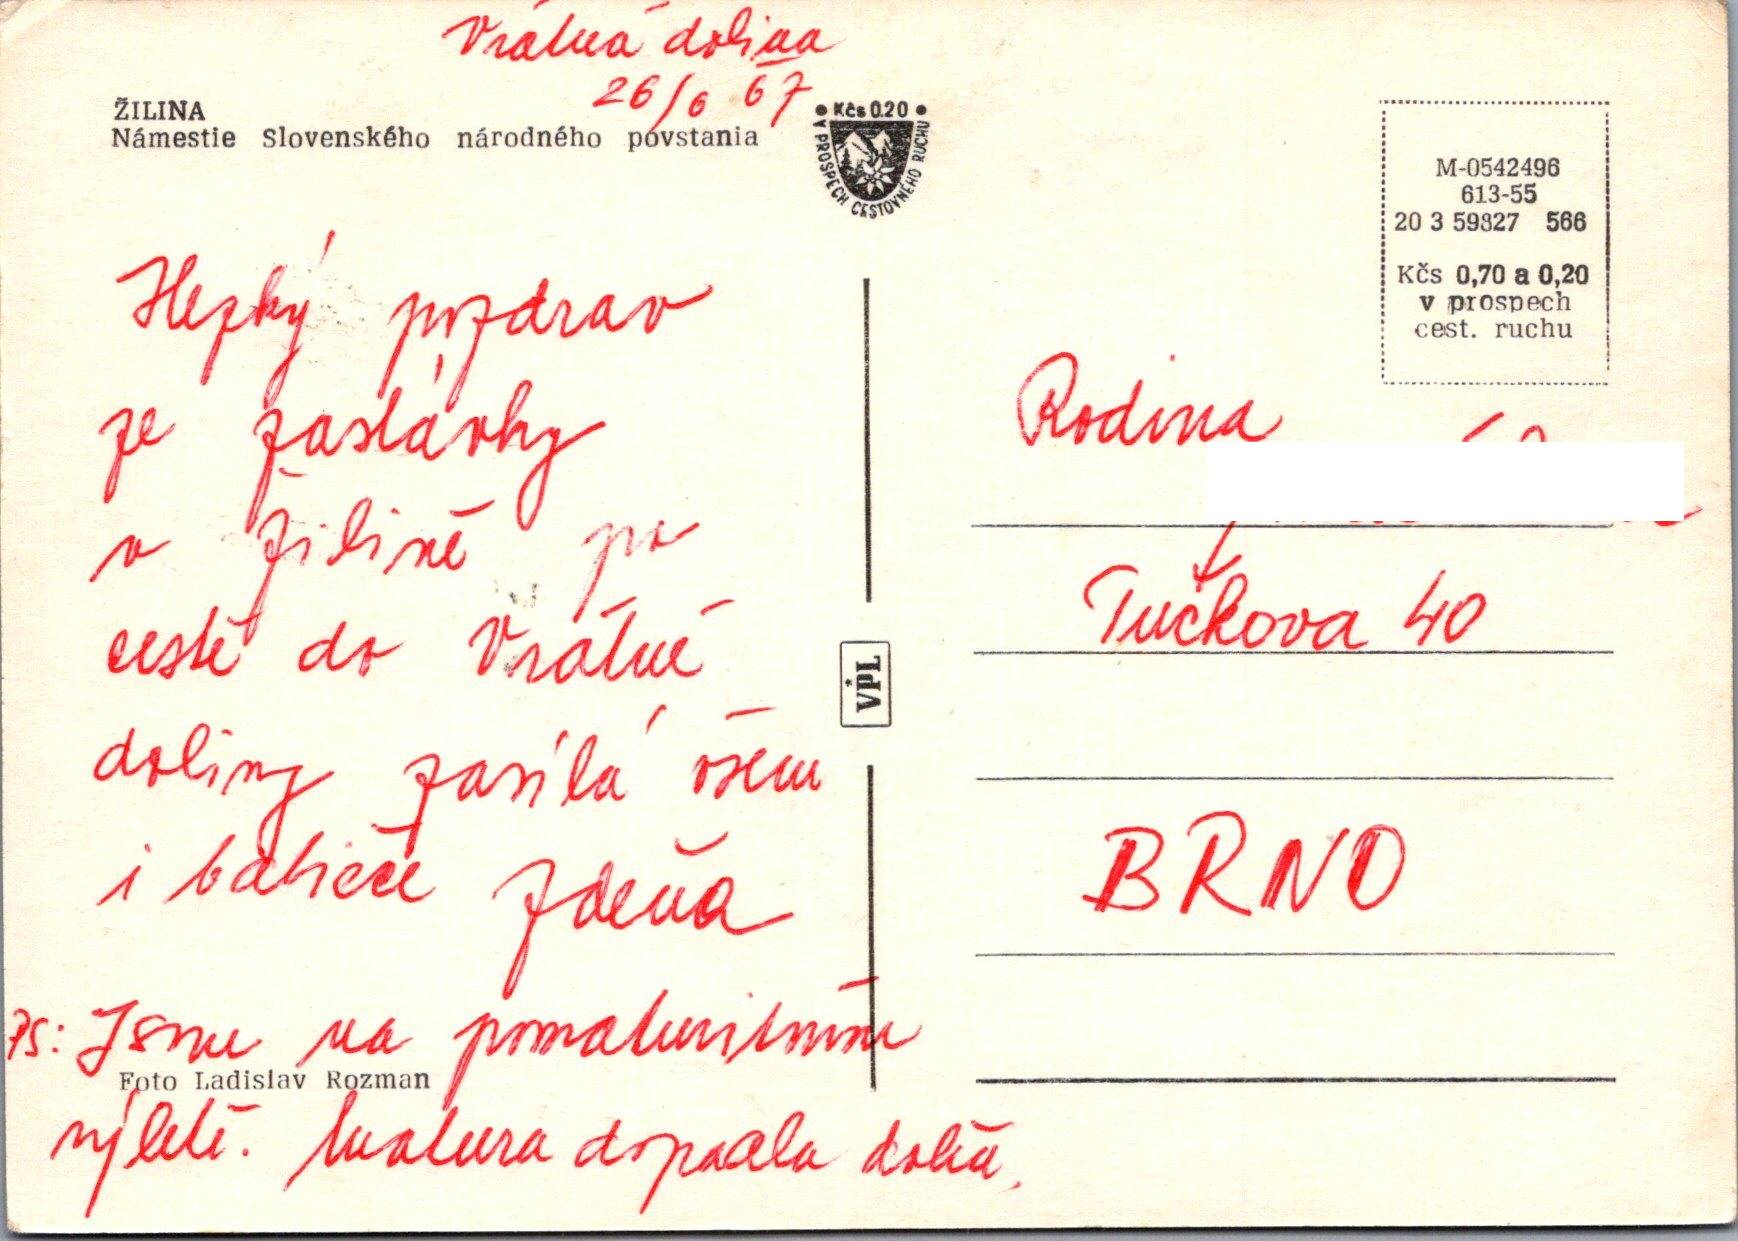 Vrátná dolina
26/6 67
ŽILINA
Námestie Slovenského národného povstania
• Kčs 0.20 •
V PROSPECH CESTOVNÉHO RUCHU
M-0542496
613-55
20 3 59827 566
Kčs 0,70 a 0,20
v prospech
cest. ruchu
Hezký pozdrav
ze zastávky
v Žilině po
cestě do Vrátné
doliny zasílá všem
i babičce Zdeňa
PS: Jsme na pomaturitním
Foto Ladislav Rozman
výletě. Matura dopadla dobře.
VPL
Rodina
Tučkova 40
BRNO